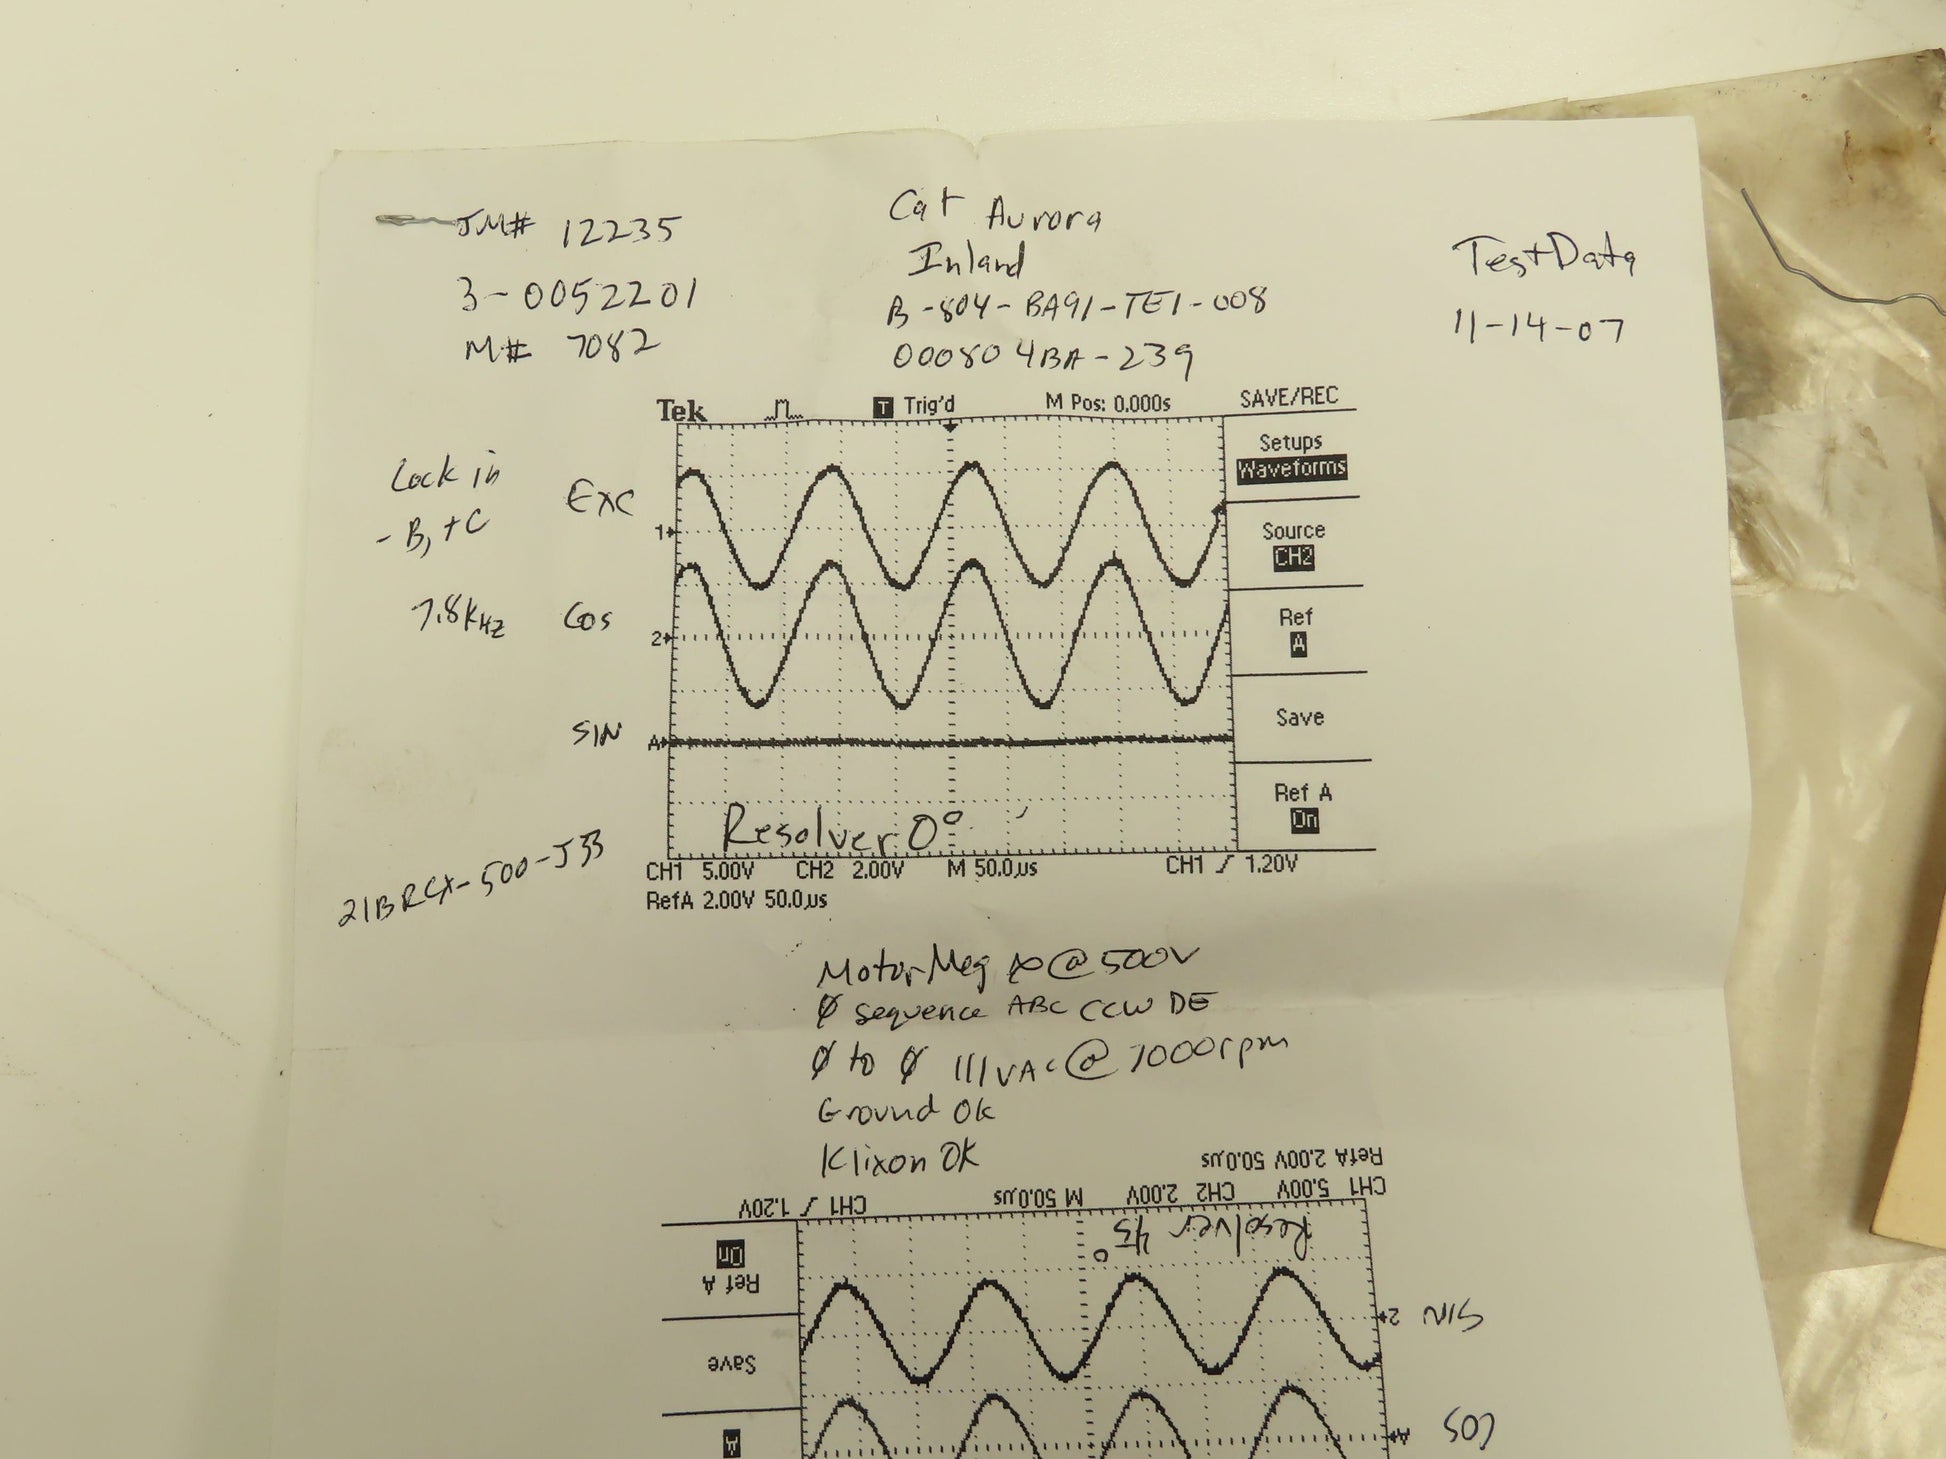 JM# 12235
3-0052201
M# 7082
Cat Aurora
Inland
B-804-BA91-TE1-008
000804BA-239
Test Data
11-14-07
Tek Trig'd M Pos: 0.000s SAVE/REC
Setups
Waveforms
Source
CH2
Ref
A
Save
Ref A
On
Lock in
- B, + C
7.8KHz
EXC
1
Cos
2
SIN
A
Resolver 0°
CH1 5.00V CH2 2.00V M 50.0µs CH1 / 1.20V
RefA 2.00V 50.0µs
21BRCX-500-J33
Motor Meg ∞ @ 500V
Ø sequence ABC CCW DE
Ø to Ø 111VAC @ 1000rpm
Ground Ok
Klixon OK
RefA 2.00V 50.0µs
CH1 5.00V CH2 2.00V M 50.0µs CH1 / 1.20V
Resolver 45°
On
Ref A
SIN
2
Save
COS
A
A